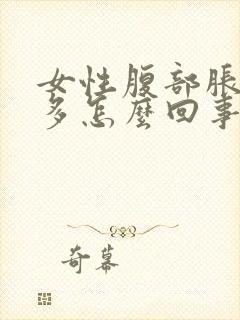 女性腹部脹
多怎麼回事
奇幕